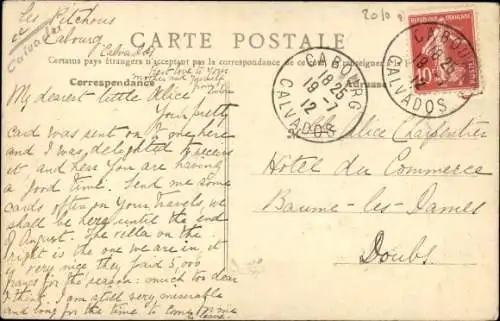 Les Pitchous
Cabourg
Calvados
Calvados
CARTE POSTALE
Certains pays étrangers n'acceptent pas de correspondance de ce
Correspondance
Adresse
best love to your
mother and
from
My dearest little Alice
Your pretty
card was sent on to me here
and I was delighted to receive
it and hear you are having
a good time. Send me some
cards often on your travels, we
shall be here until the end
of August. The villa on the
right is the one we are in, it
is very nice they paid 5,000
francs for the season: much too dear
I think. I am still very miserable
and long for the time to come
CABOURG
18 25
19 -7
12
CALVADOS
CABOURG
18 25
12
CALVADOS
RÉPUBLIQUE FRANÇAISE
10
Mlle Alice Charpentier
Hôtel du Commerce
Baume-les-Dames
Doubs